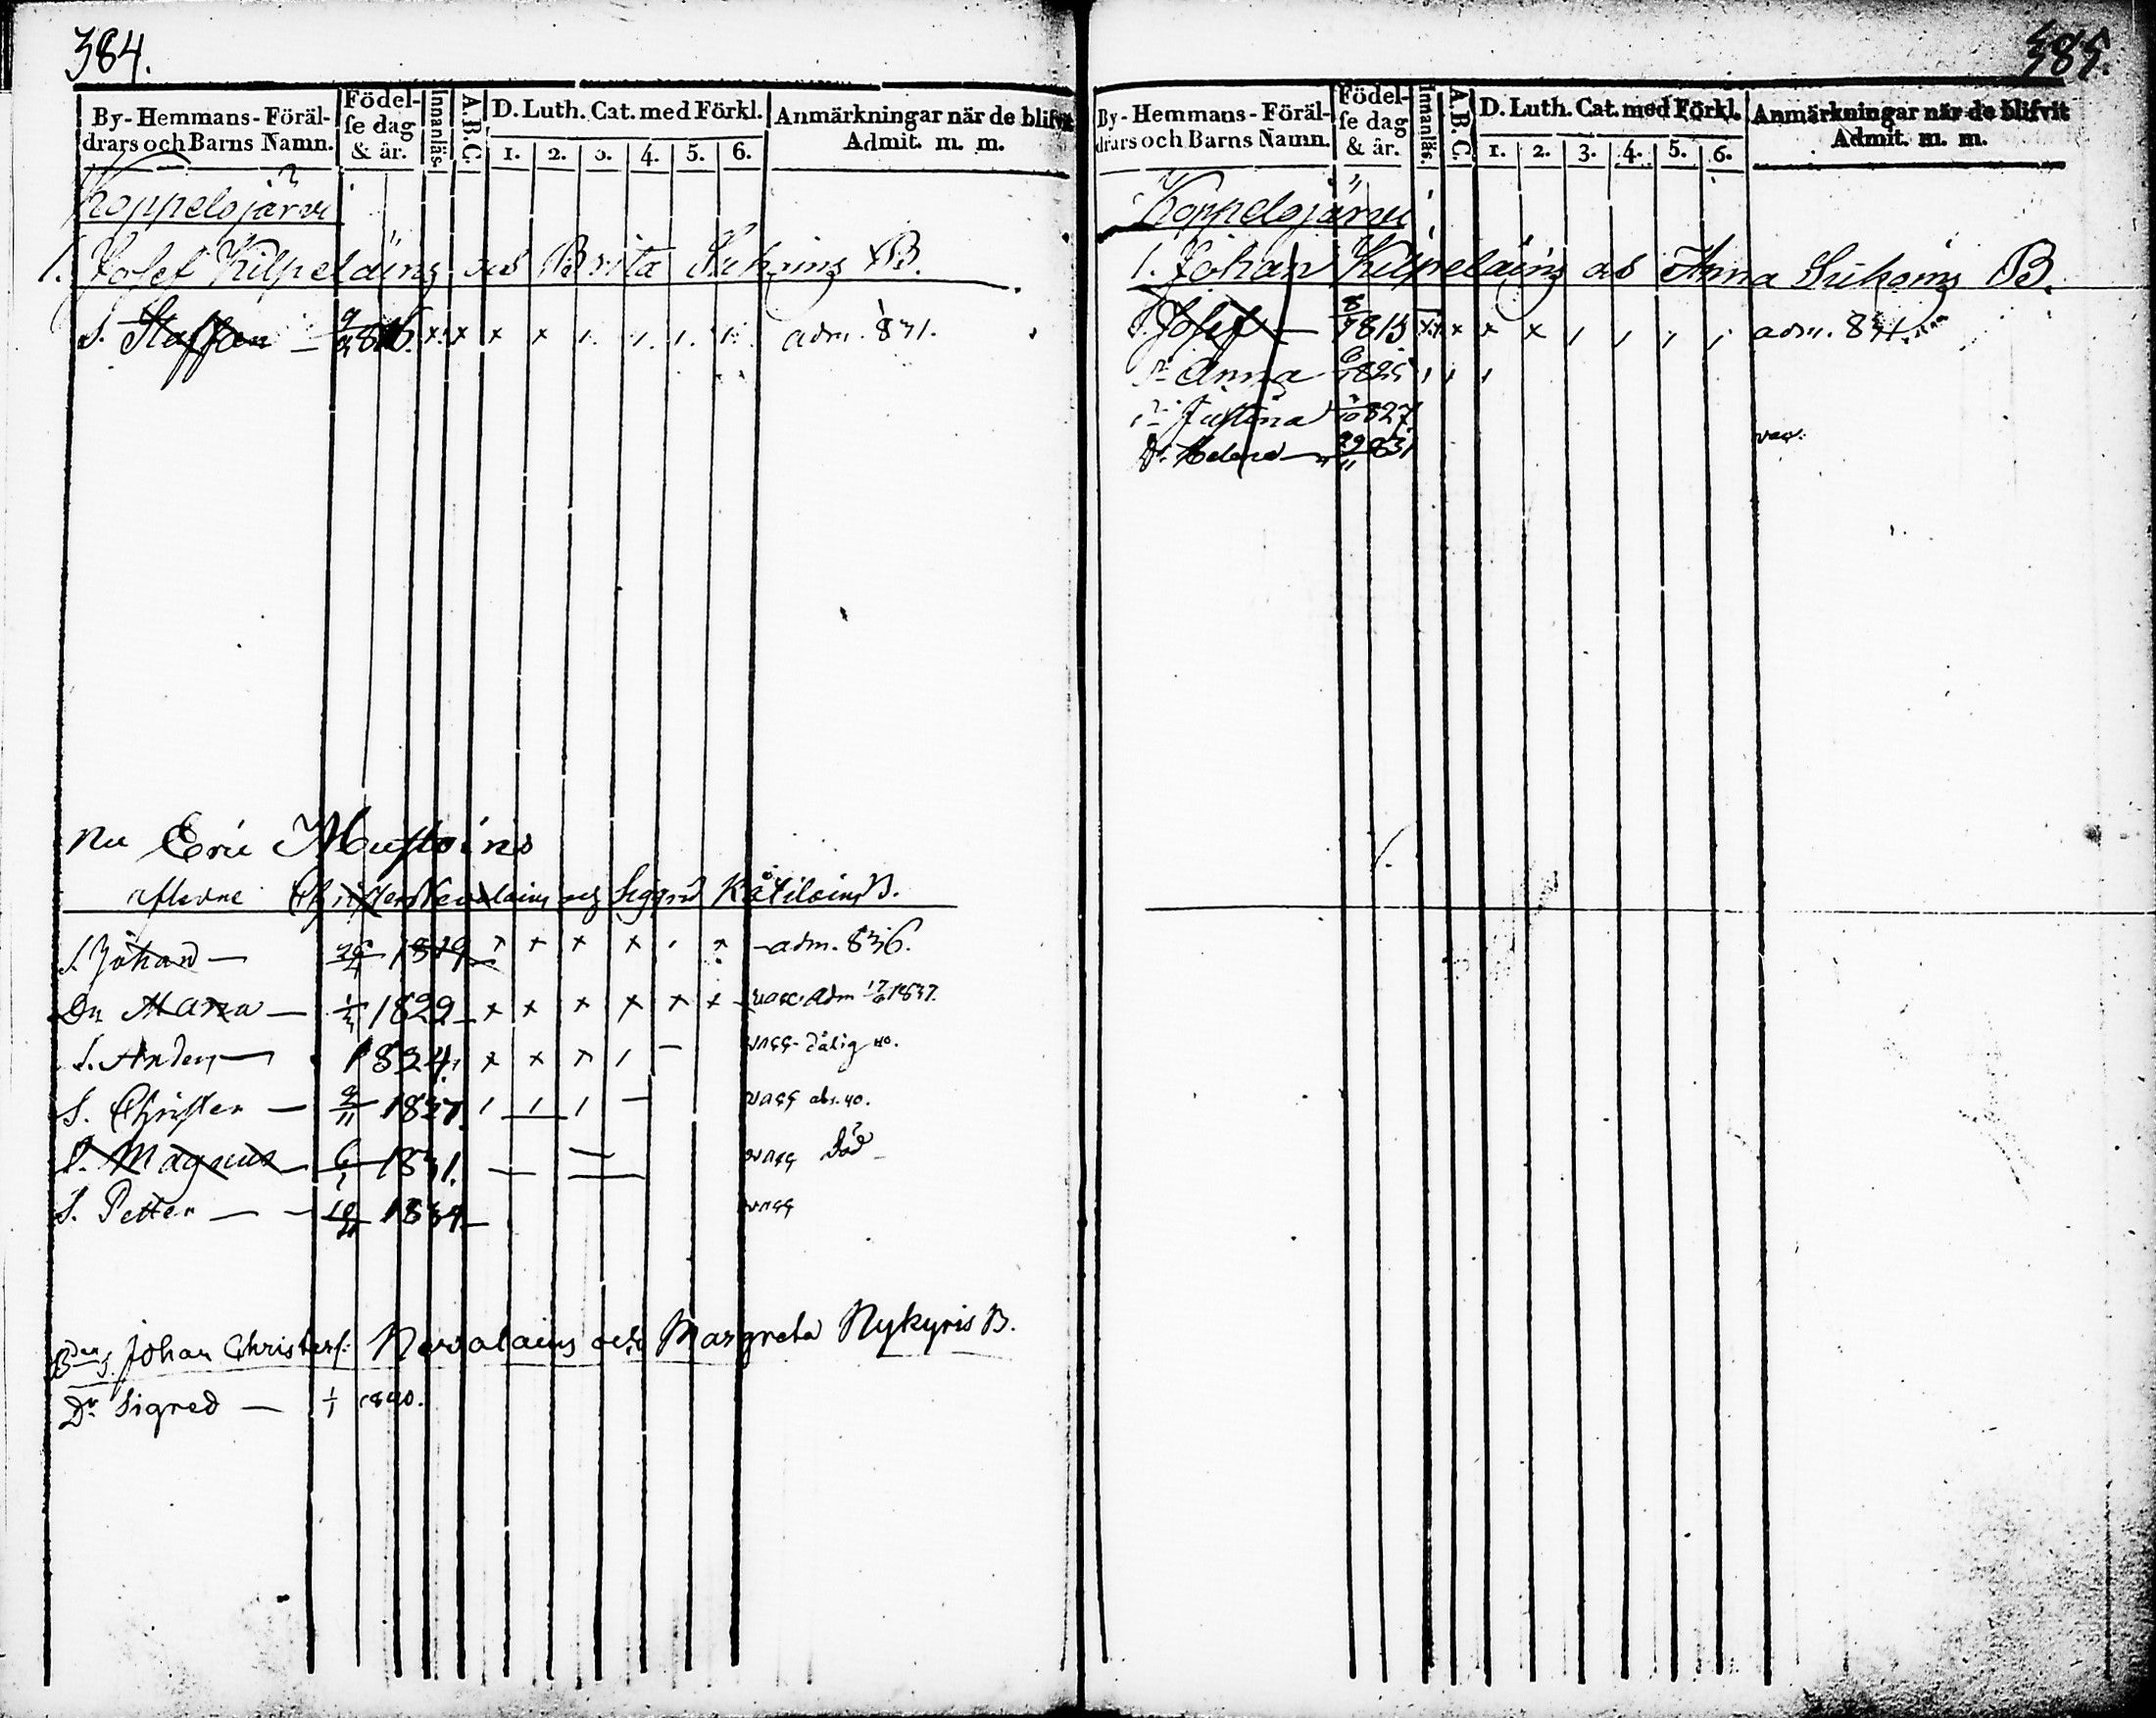 384.
By-Hemmans-Föräl-
drars och Barns Namn.
Födel-
se dag
& år.
Innanläs.
A.B.C.
D. Luth. Cat. med Förkl.
1. 2. 3. 4. 5. 6.
Anmärkningar när de blifvit
Admit. m. m.
Koppelojärvi
1. Josef Kilpeläins och Brita Suhoins B.
S. Staffan — 816. x x x x adm. 831.
nu Eric Mustoins
Christer Nevalains och Sigrid Kåtilains B.
S. Johan — 1819 x x x x x adm. 836.
Dr Maria — 1822 x x x x x x vacc. adm 17/6 1837.
S. Anders — 1824. x x x vacc. dålig 40.
S. Christer — 1827. vacc abs. 40.
S. Magnus — 1831. vacc död
S. Petter — 1834 vacc
Johan Christers. Nevalains och Margreta Nykyris B.
Dr Sigred — 1/1 1840.
385.
By-Hemmans-Föräl-
drars och Barns Namn.
Födel-
se dag
& år.
Innanläs.
A.B.C.
D. Luth. Cat. med Förkl.
1. 2. 3. 4. 5. 6.
Anmärkningar när de blifvit
Admit. m. m.
Koppelojärvi
1. Johan Kilpeläins och Anna Suhoins B.
S. Josef — 815 x x x x adm. 831.
Dr Anna 825
Dr Justina 827
vac.
Dr Helena — 29/11 831